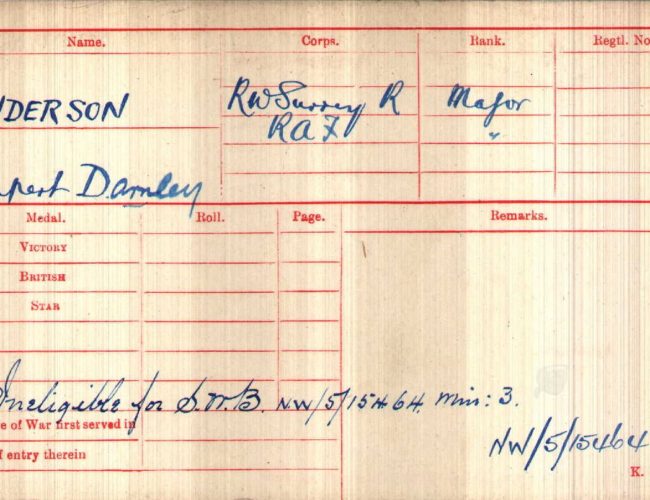 Name. Corps. Rank. Regtl. No
DERSON RWSurrey R Major
RAF "
pert Darnley
Medal. Roll. Page. Remarks.
VICTORY
BRITISH
STAR
Ineligible for S.W.B. NW/5/15464. Min: 3.
e of War first served in
f entry therein
NW/5/15464
K.